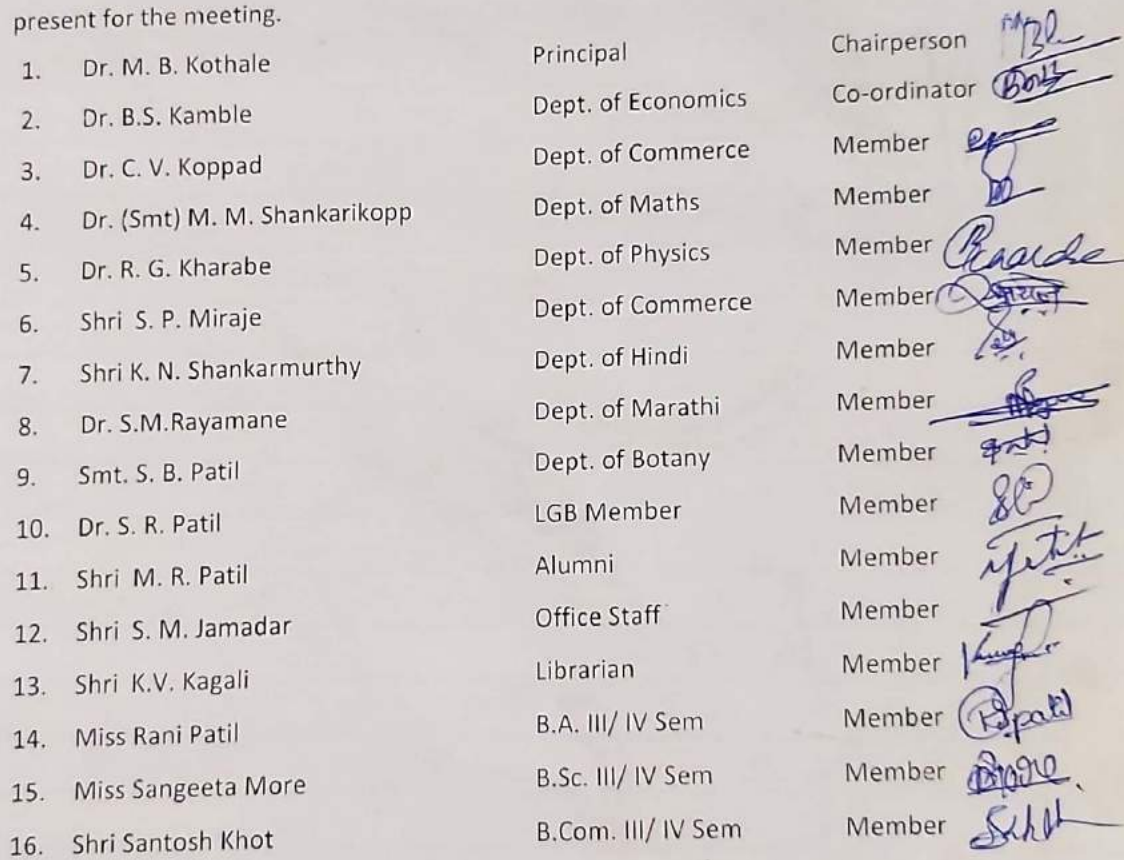 present for the meeting.
1. Dr. M. B. Kothale Principal Chairperson
2. Dr. B.S. Kamble Dept. of Economics Co-ordinator
3. Dr. C. V. Koppad Dept. of Commerce Member
4. Dr. (Smt) M. M. Shankarikopp Dept. of Maths Member
5. Dr. R. G. Kharabe Dept. of Physics Member
6. Shri S. P. Miraje Dept. of Commerce Member
7. Shri K. N. Shankarmurthy Dept. of Hindi Member
8. Dr. S.M.Rayamane Dept. of Marathi Member
9. Smt. S. B. Patil Dept. of Botany Member
10. Dr. S. R. Patil LGB Member Member
11. Shri M. R. Patil Alumni Member
12. Shri S. M. Jamadar Office Staff Member
13. Shri K.V. Kagali Librarian Member
14. Miss Rani Patil B.A. III/ IV Sem Member
15. Miss Sangeeta More B.Sc. III/ IV Sem Member
16. Shri Santosh Khot B.Com. III/ IV Sem Member